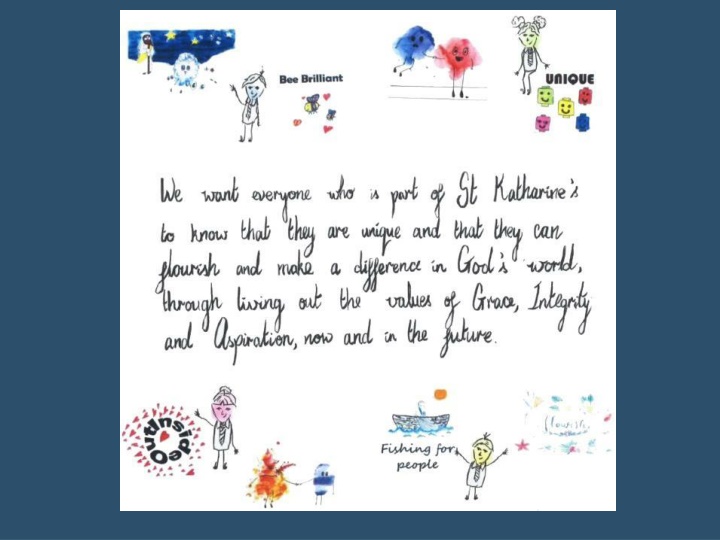 Bee Brilliant
UNIQUE
We want everyone who is part of St Katharine's
to know that they are unique and that they can
flourish and make a difference in God's world,
through living out the values of Grace, Integrity
and Aspiration, now and in the future.
InsideOut
Fishing for
people
flourish